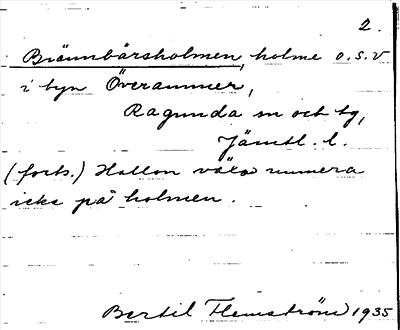 2.
Brännbärsholmen, holme o.s.v
i byn Överammer,
Ragunda sn och tg,
Jämtl. l.
(forts.) Hallon växa numera
icke på holmen.
Bertil Flemström 1935